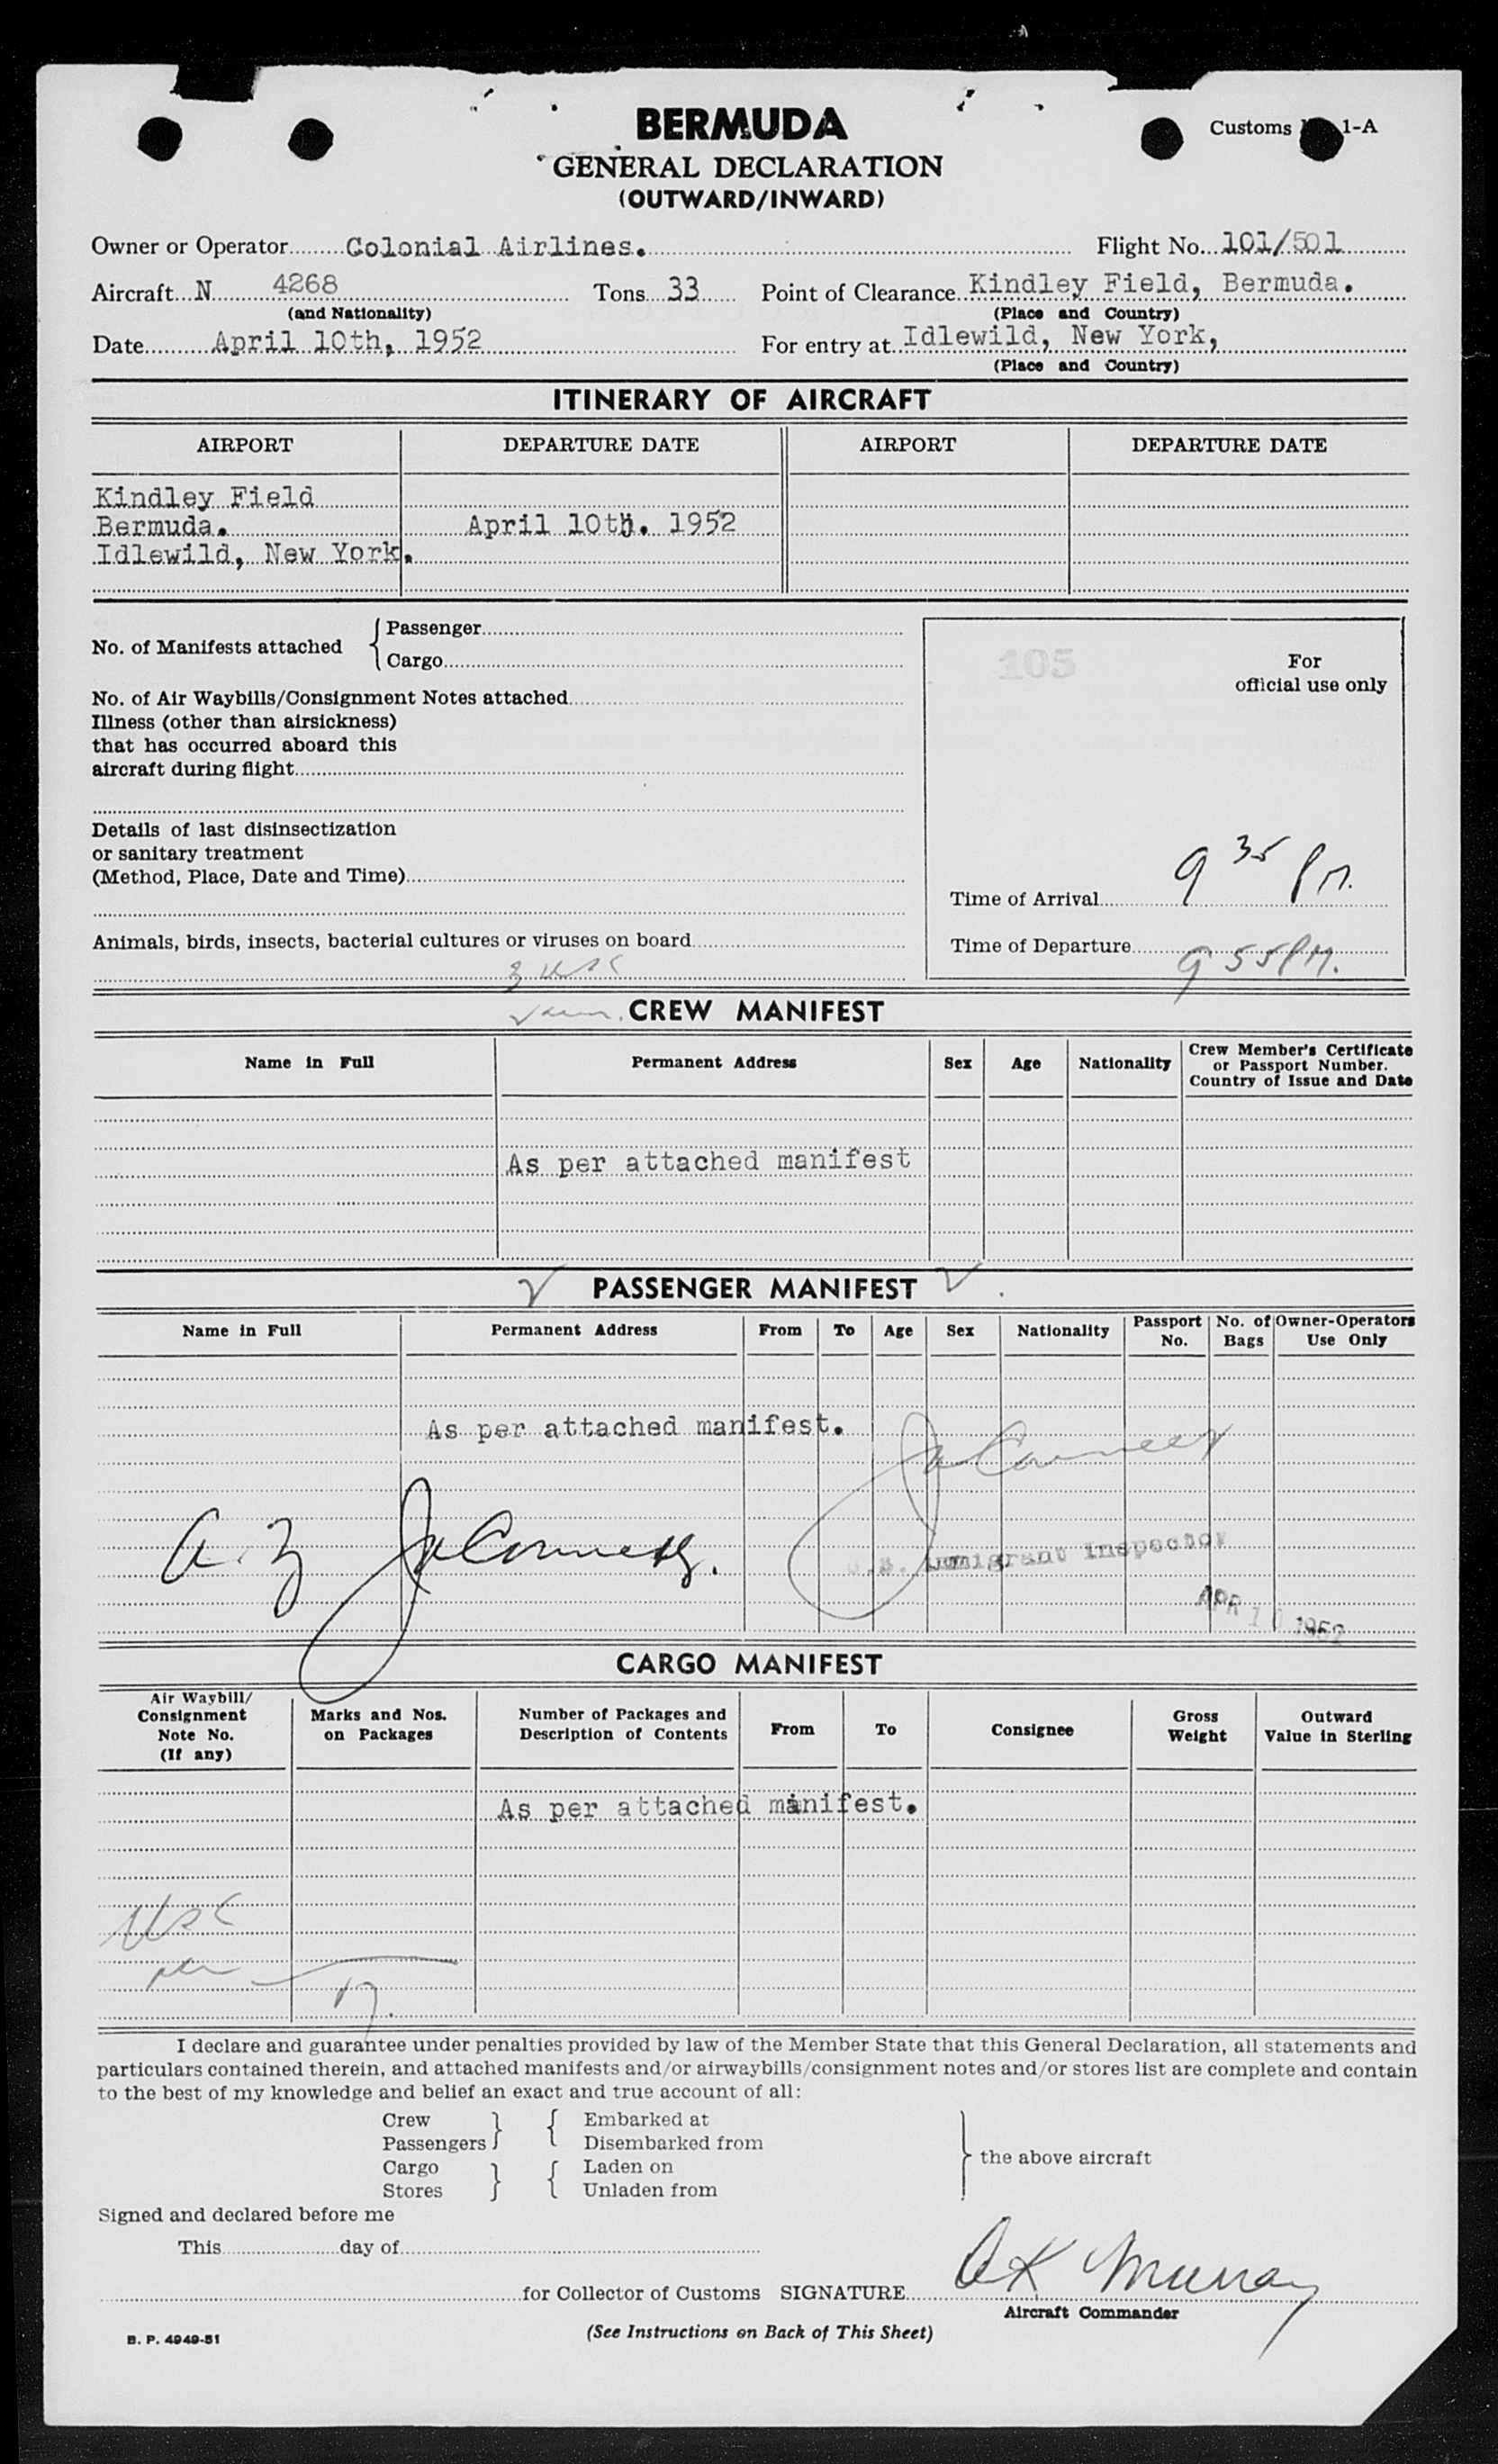 BERMUDA
Customs 1-A
GENERAL DECLARATION
(OUTWARD/INWARD)
Owner or Operator Colonial Airlines. Flight No. 101/501
Aircraft N 4268 Tons 33 Point of Clearance Kindley Field, Bermuda.
(and Nationality) (Place and Country)
Date April 10th, 1952 For entry at Idlewild, New York,
(Place and Country)
ITINERARY OF AIRCRAFT
AIRPORT DEPARTURE DATE AIRPORT DEPARTURE DATE
Kindley Field
Bermuda. April 10th. 1952
Idlewild, New York.
No. of Manifests attached
Passenger
Cargo
105
For
official use only
No. of Air Waybills/Consignment Notes attached
Illness (other than airsickness)
that has occurred aboard this
aircraft during flight
Details of last disinsectization
or sanitary treatment
(Method, Place, Date and Time)
Time of Arrival 9 35 PM.
Animals, birds, insects, bacterial cultures or viruses on board
Time of Departure 9 55 PM.
CREW MANIFEST
Name in Full Permanent Address Sex Age Nationality Crew Member's Certificate
or Passport Number.
Country of Issue and Date
As per attached manifest
PASSENGER MANIFEST
Name in Full Permanent Address From To Age Sex Nationality Passport No. No. of Bags Owner-Operators Use Only
As per attached manifest.
U.S. Immigrant Inspector
APR 10 1952
CARGO MANIFEST
Air Waybill/
Consignment
Note No.
(If any)
Marks and Nos.
on Packages
Number of Packages and
Description of Contents
From To Consignee
Gross
Weight
Outward
Value in Sterling
As per attached manifest.
I declare and guarantee under penalties provided by law of the Member State that this General Declaration, all statements and
particulars contained therein, and attached manifests and/or airwaybills/consignment notes and/or stores list are complete and contain
to the best of my knowledge and belief an exact and true account of all:
Crew Embarked at
Passengers Disembarked from
the above aircraft
Cargo Laden on
Stores Unladen from
Signed and declared before me
This day of
for Collector of Customs SIGNATURE OK Murray
Aircraft Commander
B. P. 4949-51
(See Instructions on Back of This Sheet)